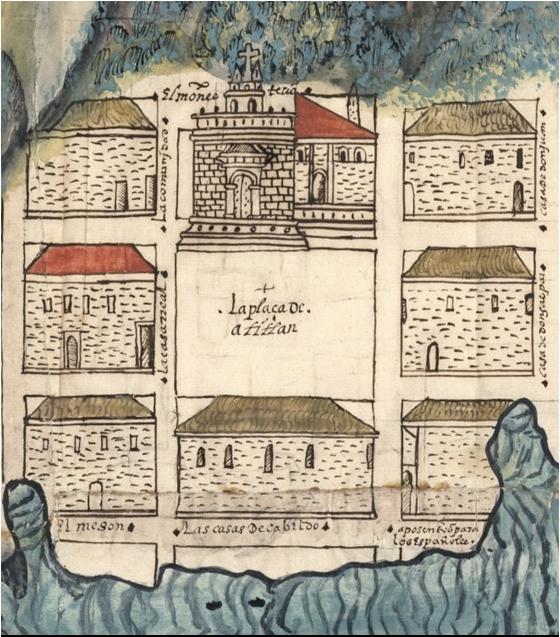 El mones terio
La comunidad
Casa de don juan
La plaça de
atitlan
La casa rreal
Casa de don gaspar
El meson
Las casas De cabildo
aposentos para
los españoles